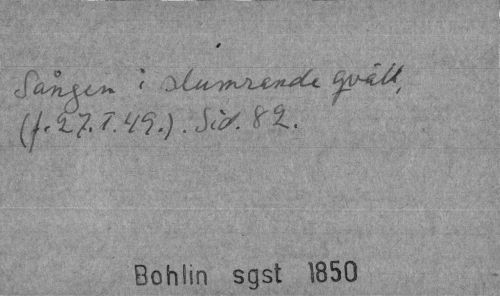 Sången i slumrande qväll,
(f. 27.7.49.). Sid. 82.
Bohlin sgst 1850